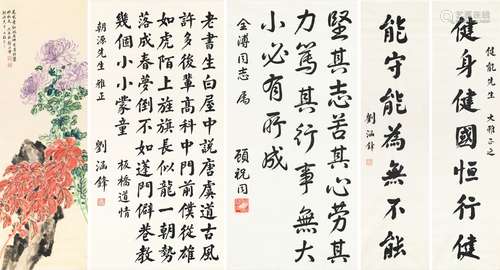 健能先生 大雅正之
健身健國恒行健
能守能為無不能
劉涵鋒
堅其志苦其心勞其
力篤其行事無大
小必有所成
金溥同志 屬
顧祝同
老書生白屋中說唐虞道古風
許多後輩高科中門前僕從雄
如虎陌上旌旗長似龍一朝勢
落成春夢倒不如蓬門僻巷教
幾個小小蒙童 板橋道情
朝源先生 雅正
劉涵鋒